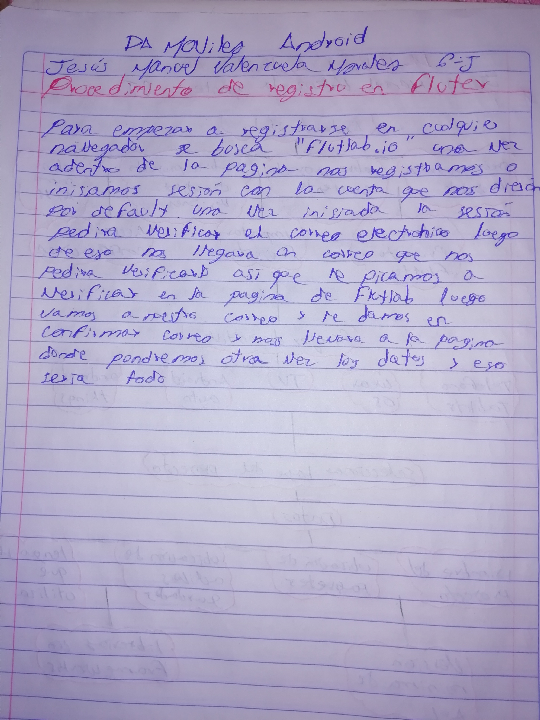 DA Moviles Android
Jesús Manuel Valenzuela Morales 6-J
Procedimiento de registro en Fluter
Para empezar a registrarse en cualquier
navegador se busca "Flutlab.io" una vez
adentro de la pagina nos registramos o
inisamos sesión con la cuenta que nos dieron
por default una vez inisiada la sesión
pedira verificar el correo electronico luego
de eso nos llegara un correo que nos
pedira verificarlo asi que le picamos a
verificar en la pagina de Flutlab luego
vamos a nuestro correo y le damos en
confirmar correo y nos llevara a la pagina
donde pondremos otra vez los datos y eso
seria todo